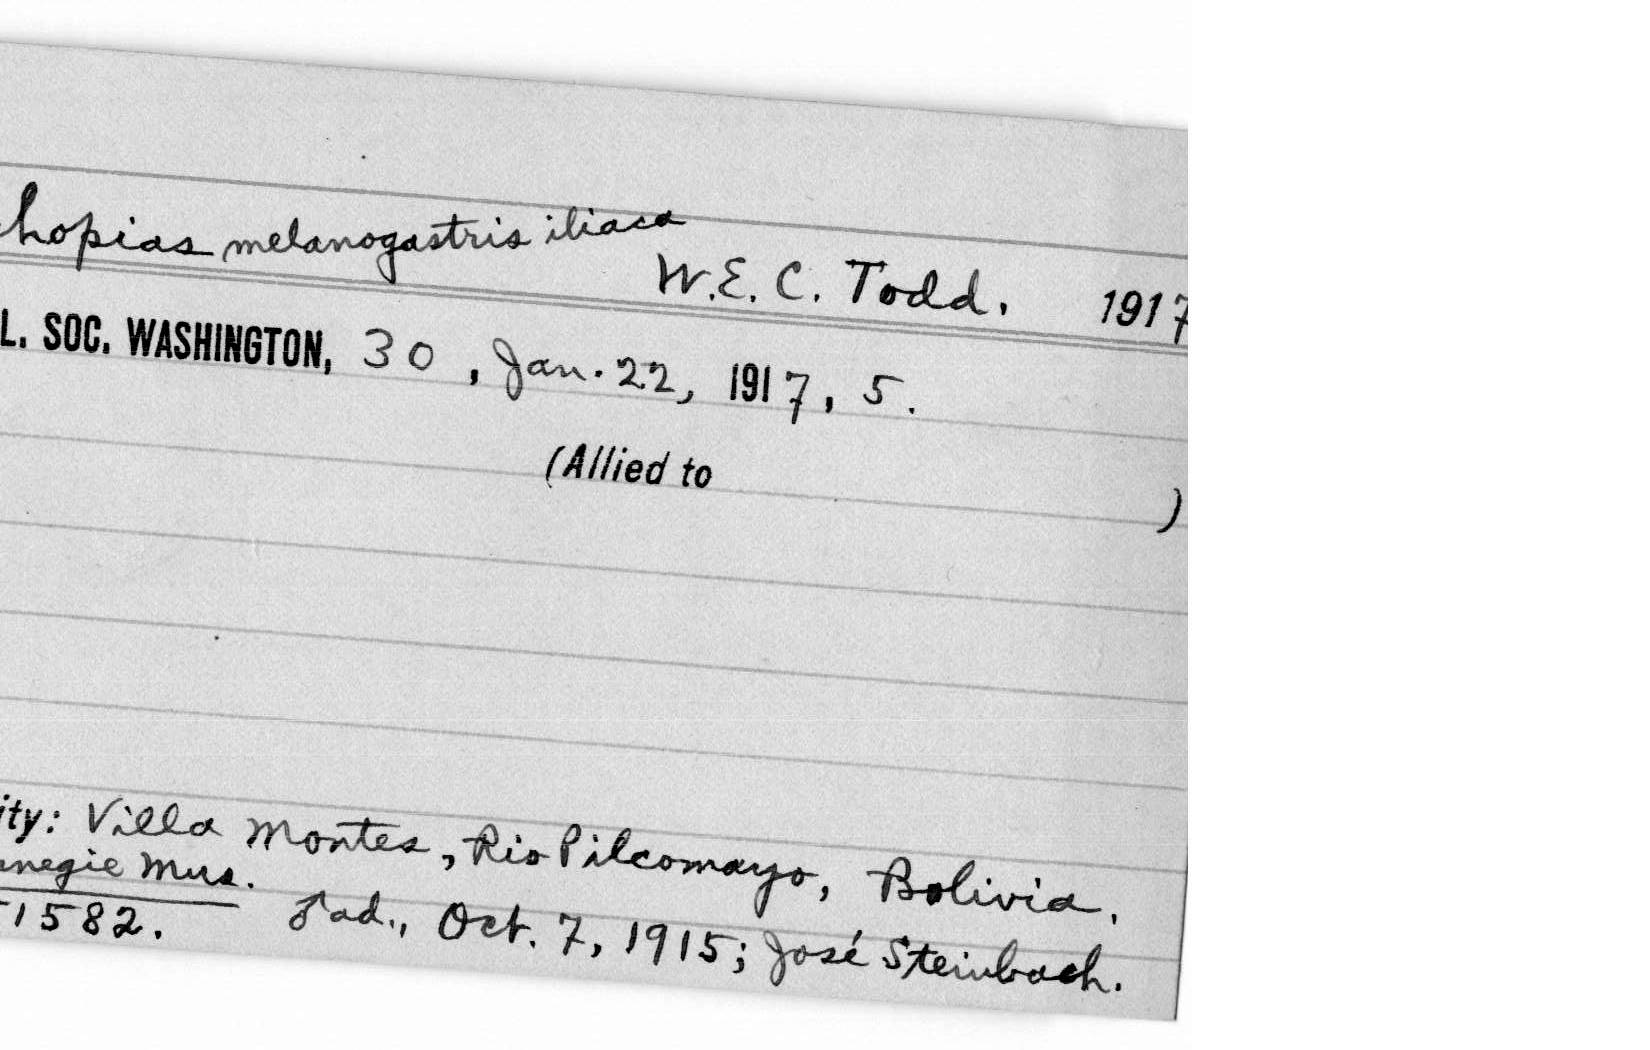 hopias melanogastris iliaca
W.E. C. Todd. 1917
L. SOC. WASHINGTON, 30, Jan. 22, 1917, 5.
(Allied to )
ity: Villa Montes, Rio Pilcomayo, Bolivia.
negie Mus.
1582. ♂ ad., Oct. 7, 1915; José Steinbach.